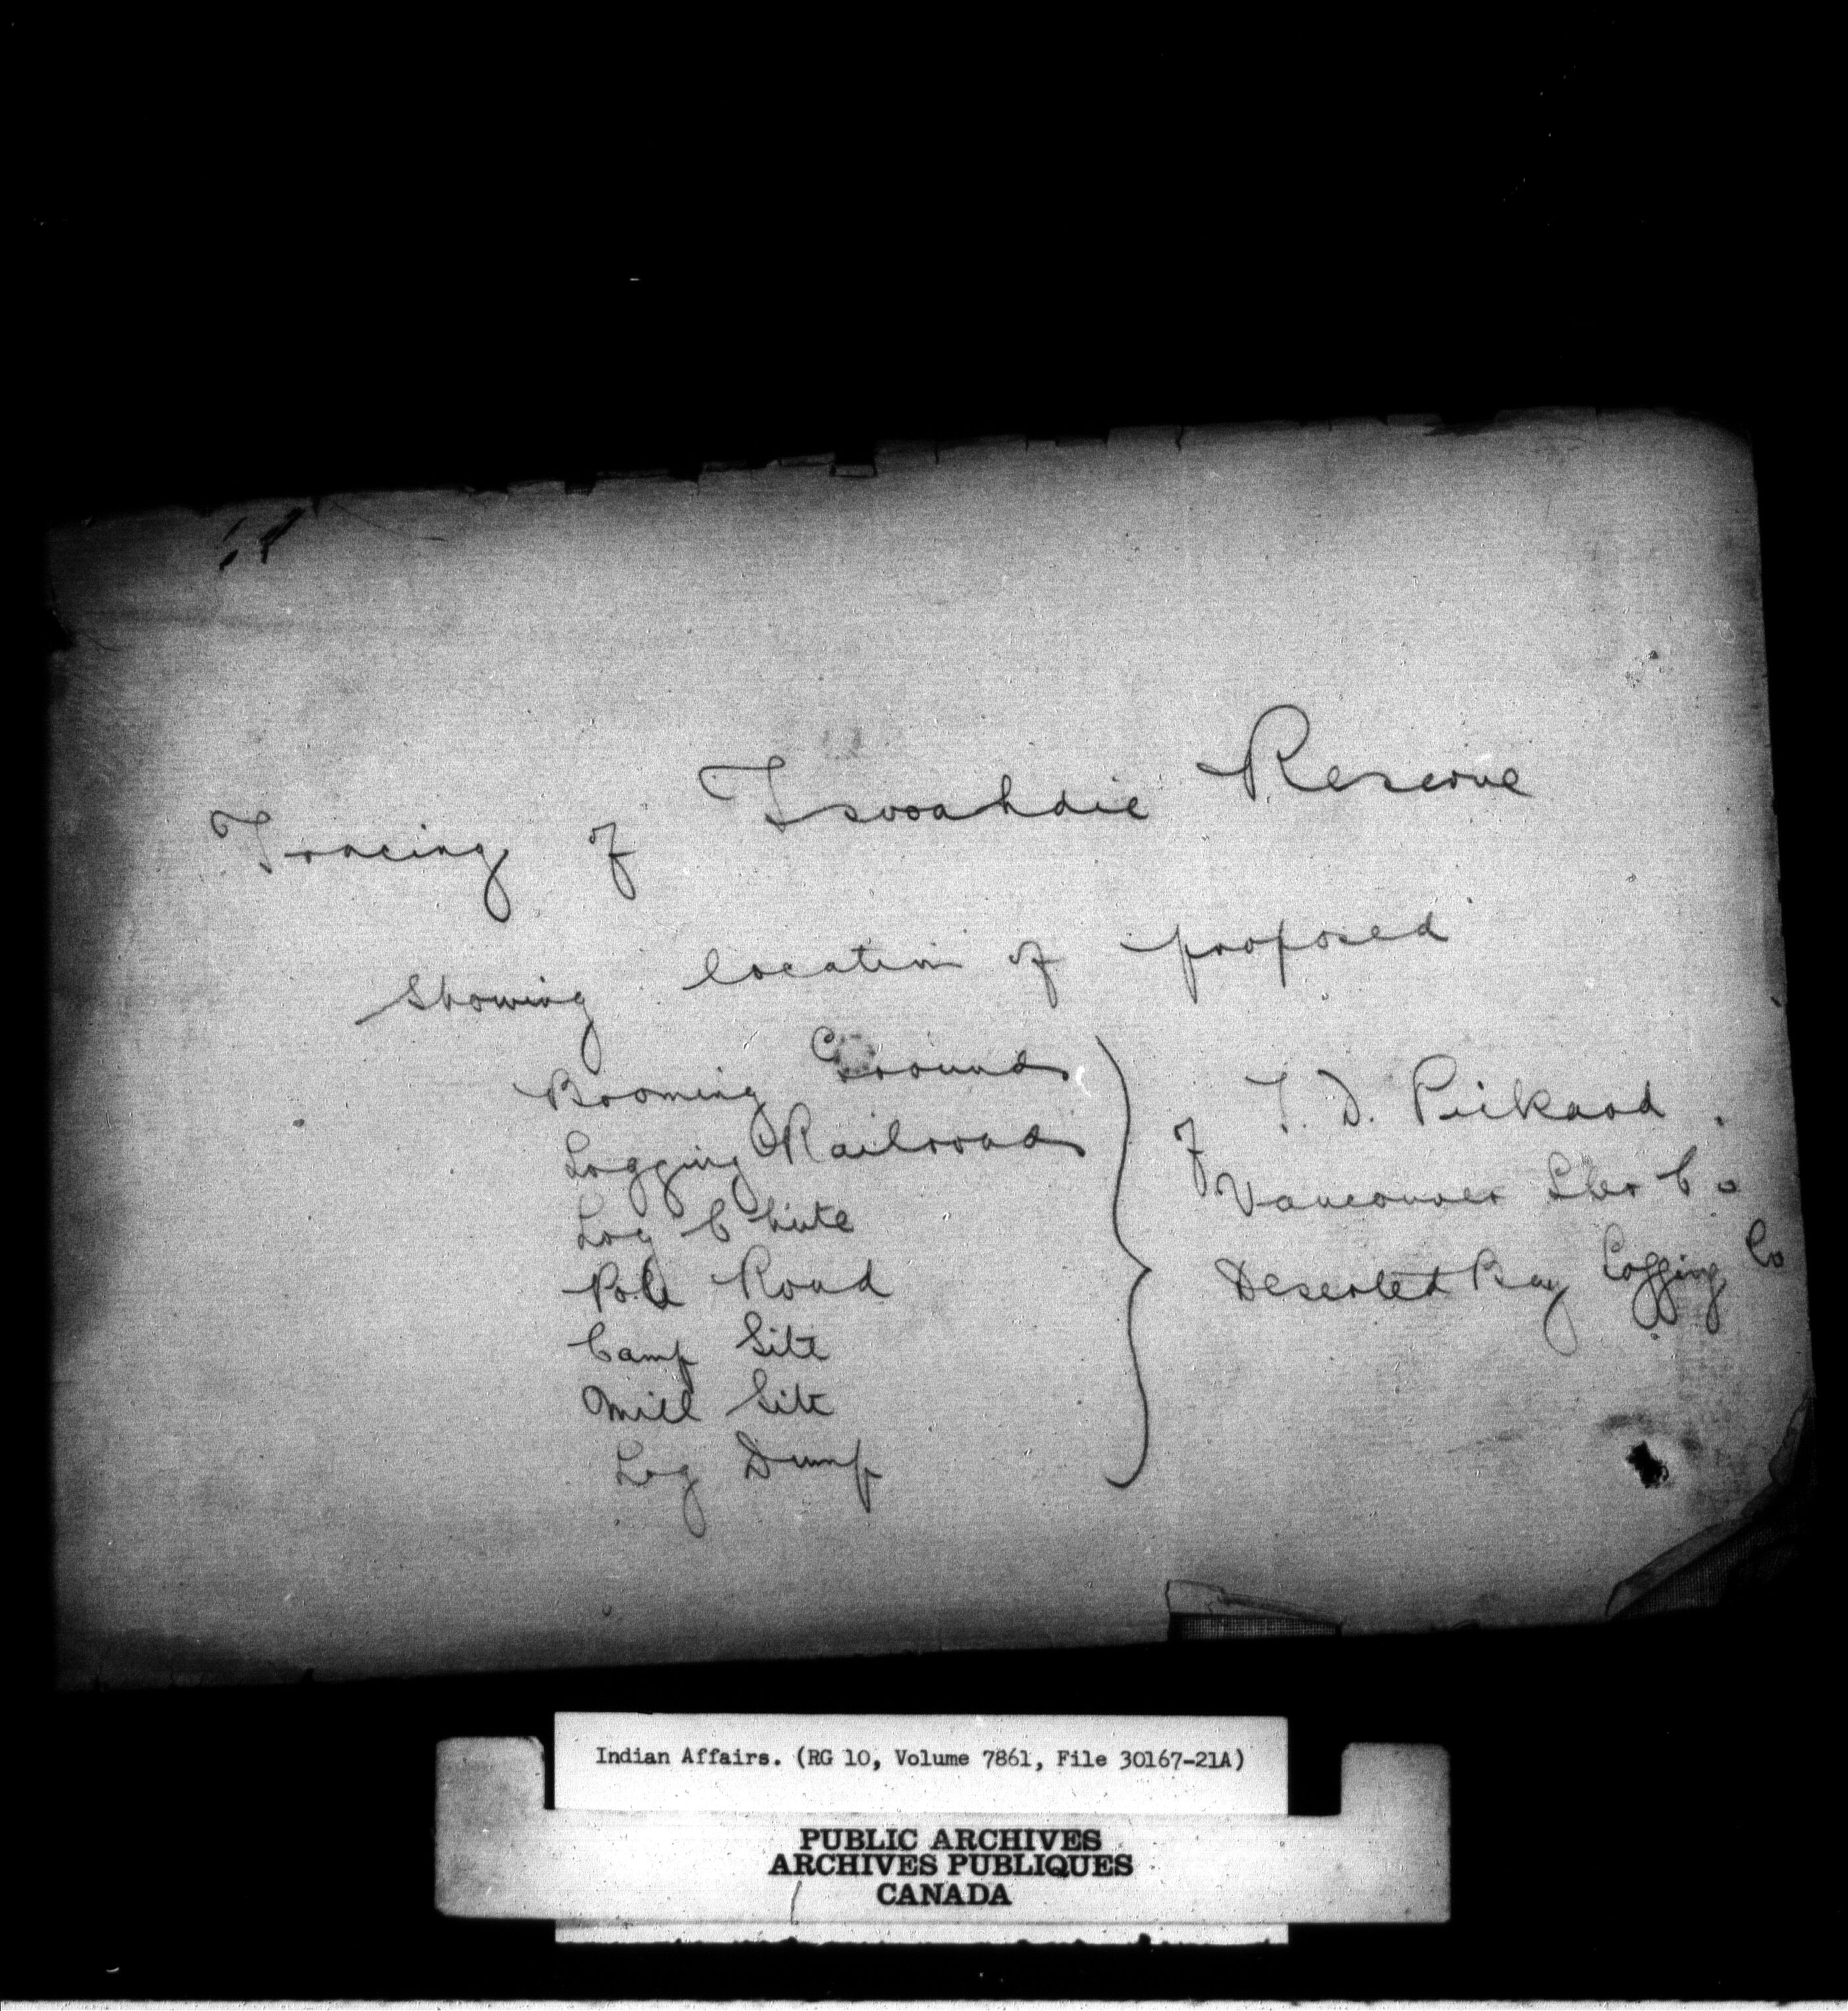 Tracing of Tsooahdie Reserve
Showing location of proposed
Booming Grounds
Logging Railroads
Log Chute
Pole Road
Camp Site
Mill Site
Log Dump
of T. D. Peikard
Vancouver Lbr Co
Deserted Bay Logging Co
Indian Affairs. (RG 10, Volume 7861, File 30167-21A)
PUBLIC ARCHIVES
ARCHIVES PUBLIQUES
CANADA